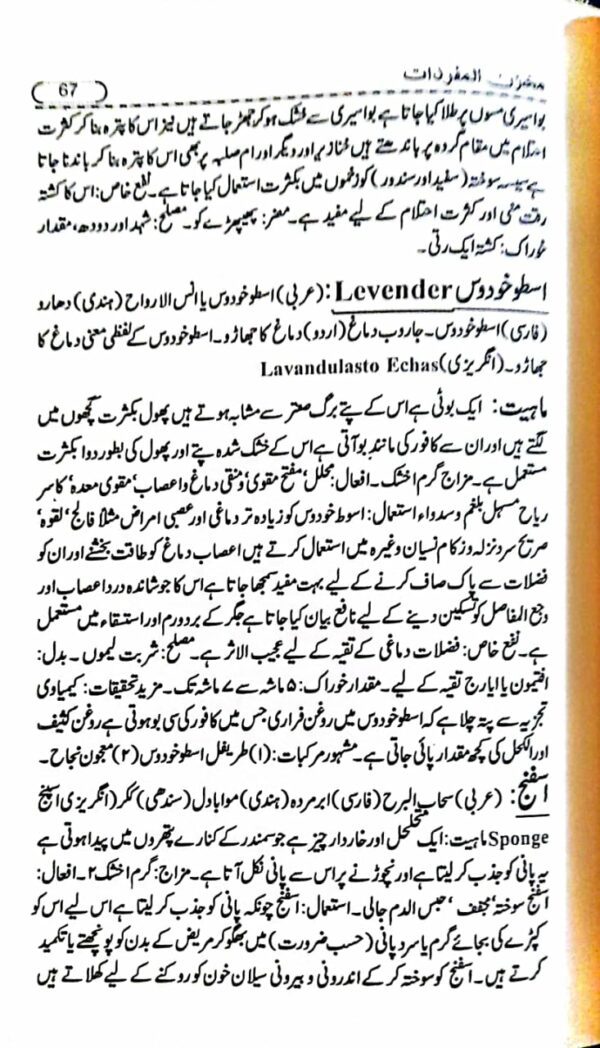 مخزن المفردات
67
بواسیری مسوں پر طلا کیا جاتا ہے بواسیری سے خشک ہو کر جھڑ جاتے ہیں نیز اس کا پترہ بنا کر کثرت
احتلام میں مقام گردہ پر باندھتے ہیں خنازیر اور دیگر اورام صلبہ پر بھی اس کا پترہ بنا کر باندا جاتا
ہے سیسہ سوختہ (سفید اور سندور) کو زخموں میں بکثرت استعمال کیا جاتا ہے۔ نفع خاص: اس کا کشتہ
رقت منی اور کثرت احتلام کے لیے مفید ہے۔ مضر: پھیپھڑے کو۔ مصلح: شہد اور دودھ، مقدار
خوراک: کشتہ ایک رتی۔
اسطوخودوس Levender: (عربی) اسطوخودوس یا انس الارواح (ہندی) دھارو
(فارسی) اسطوخودوس۔ جاروب دماغ (اردو) دماغ کا جھاڑو۔ اسطوخودوس کے لفظی معنی دماغ کا
جھاڑو۔ (انگریزی) Lavandulasto Echas
ماہیت: ایک بوٹی ہے اس کے پتے برگ صعتر سے مشابہ ہوتے ہیں پھول بکثرت گچھوں میں
لگتے ہیں اور ان سے کافور کی مانند بو آتی ہے اس کے خشک شدہ پتے اور پھول کی بطور دوا بکثرت
مستعمل ہے۔ مزاج گرم ۱ خشک۔ افعال: محلل‘ مفتح مقوی‘ ومنقی دماغ و اعصاب‘ مقوی معدہ‘ کاسر
ریاح مسہل بلغم وسدواء استعمال: اسوط خودوس کو زیادہ تر دماغی اور عصبی امراض مثلاً فالج‘ لقوہ‘
صریح سرد نزلہ و زکام نسیان وغیرہ میں استعمال کرتے ہیں اعصاب دماغ کو طاقت بخشنے اور ان کو
فضلات سے پاک صاف کرنے کے لیے بہت مفید سمجھا جاتا ہے اس کا جوشاندہ درد اعصاب اور
وجع المفاصل کو تسکین دینے کے لیے نافع بیان کیا جاتا ہے جگر کے بردورم اور استسقاء میں مستعمل
ہے۔ نفع خاص: فضلات دماغی کے تقیہ کے لیے عجیب الاثر ہے۔ مصلح: شربت لیموں۔ بدل:
افتیمون یا ایارج تقیہ کے لیے۔ مقدار خوراک: ۵ ماشہ سے ۷ ماشہ تک۔ مزید تحقیقات: کیمیاوی
تجزیہ سے پتہ چلا ہے کہ اسطوخودوس میں روغن فراری جس میں کافور کی سی بو ہوتی ہے روغن کثیف
اور الکحل کی کچھ مقدار پائی جاتی ہے۔ مشہور مرکبات: (۱) طریفل اسطوخودوس (۲) معجون نجاح۔
اسفنج: (عربی) سحاب البرح (فارسی) ابر مردہ (ہندی) موابادل (سندھی) ککر (انگریزی اسپنج
Sponge ماہیت: ایک متخلخل اور خاردار چیز ہے جو سمندر کے کنارے پتھروں میں پیدا ہوتی ہے
یہ پانی کو جذب کر لیتا ہے اور نچوڑنے پر اس سے پانی نکل آتا ہے۔ مزاج: گرم ۱ خشک ۲۔ افعال:
اسفنج سوختہ‘ مجفف‘ حبس الدم جالی۔ استعمال: اسفنج چونکہ پانی کو جذب کر لیتا ہے اس لیے اس کو
کپڑے کی بجائے گرم یا سرد پانی (حسب ضرورت) میں بھگو کر مریض کے بدن کو پونچھتے یا تکمید
کرتے ہیں۔ اسفنج کو سوختہ کر کے اندرونی و بیرونی سیلان خون کو روکنے کے لیے کھلاتے ہیں